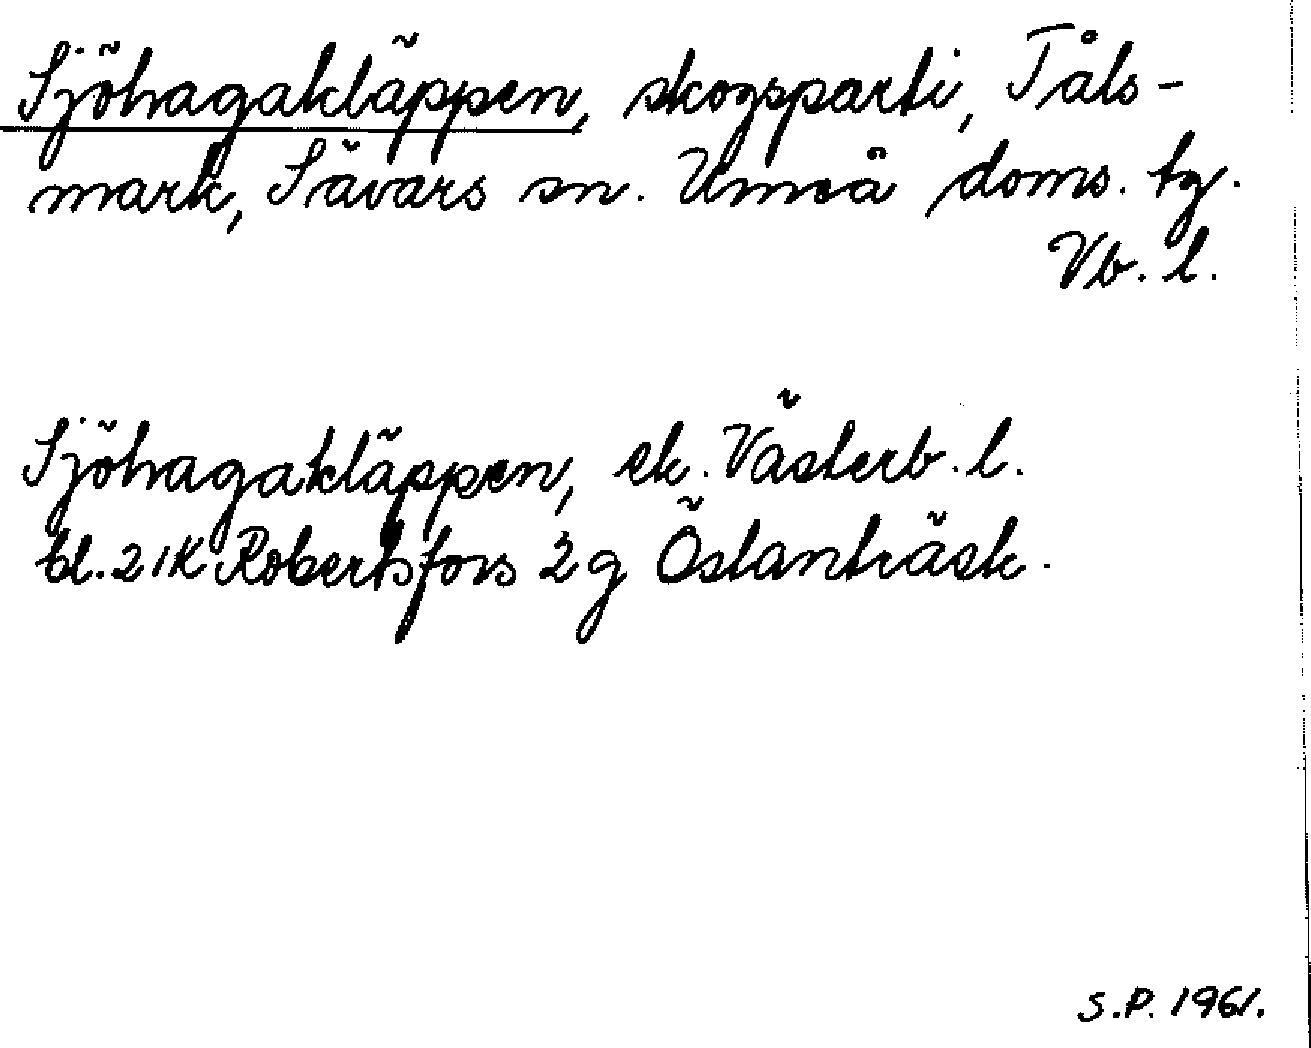 Sjöhagakläppen, skogsparti, Tåls-
mark, Sävars sn. Umeå doms. tg.
Vb. l.
Sjöhagakläppen, ek. Västerb. l.
bl. 21K Robertsfors 2g Östanträsk.
S.P. 1961.